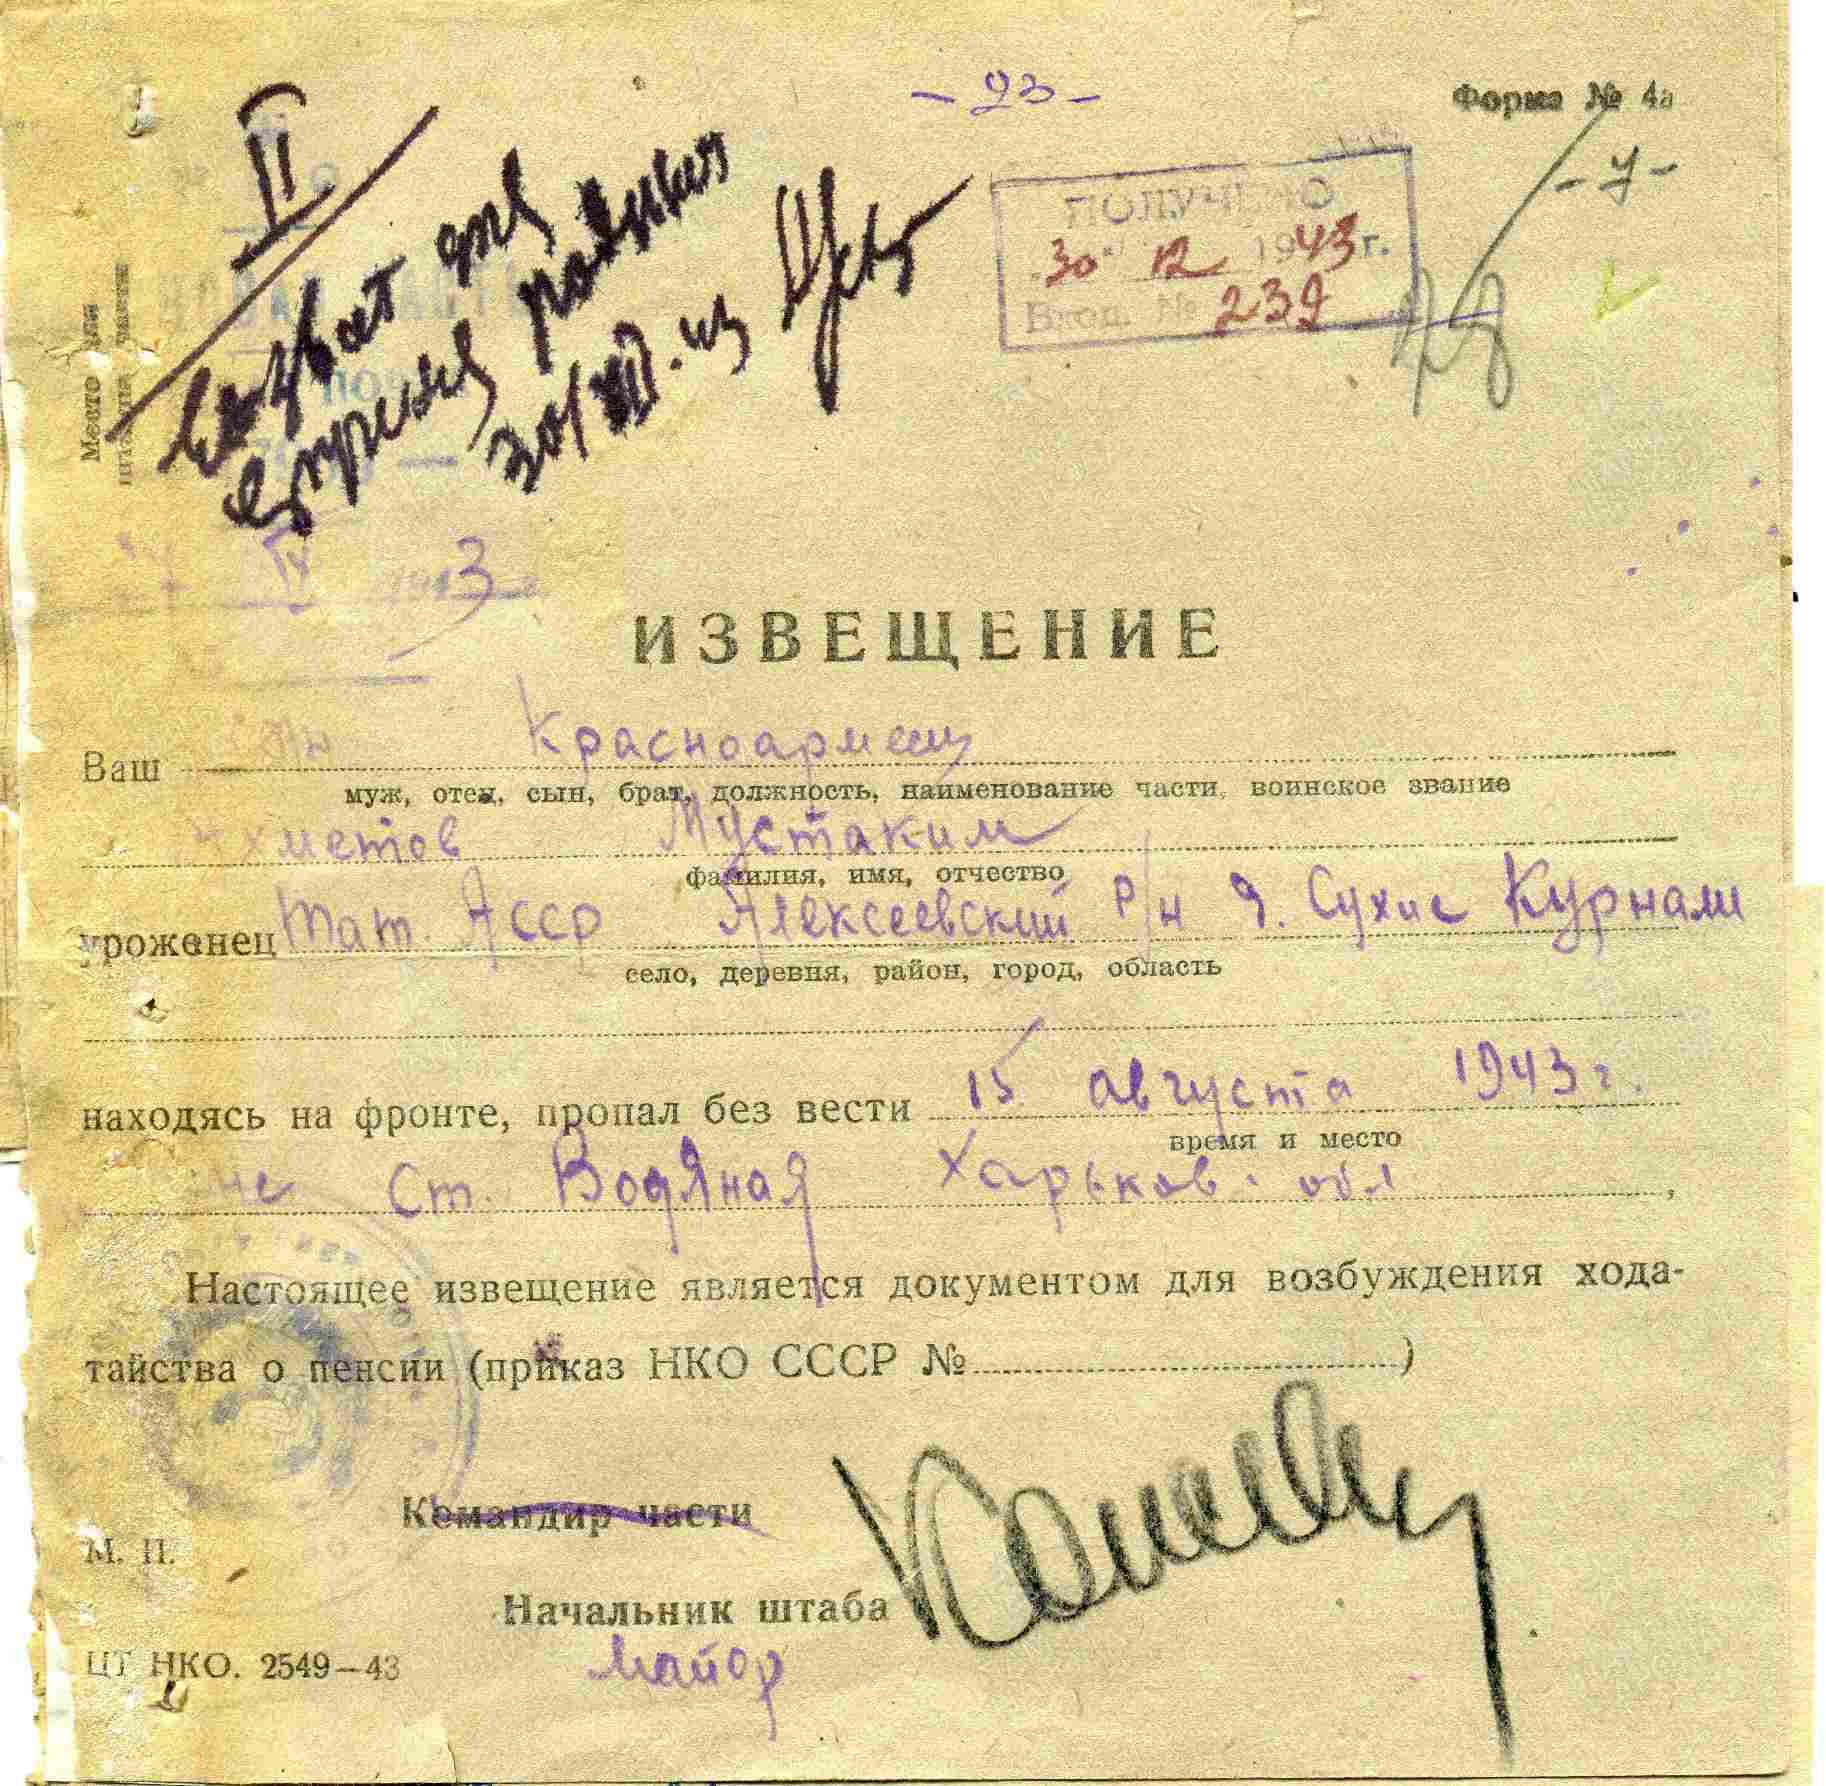 - 23 -
Форма № 4а
- 7 -
II
ПОЛУЧЕНО
"30" 12 1943 г.
Вход. № 239
48
для
30/XII
Место для
1943
ИЗВЕЩЕНИЕ
Ваш Красноармеец
муж, отец, сын, брат, должность, наименование части, воинское звание
Ахметов Мустаким
фамилия, имя, отчество
уроженец Тат. АССР Алексеевский р/н д. Сухие Курнали
село, деревня, район, город, область
находясь на фронте, пропал без вести 15 августа 1943 г.
время и место
Ст. Водяная Харьков. обл
,
Настоящее извещение является документом для возбуждения хода-
тайства о пенсии (приказ НКО СССР № )
Командир части
М. П.
Начальник штаба
Майор
ЦТ НКО. 2549—43